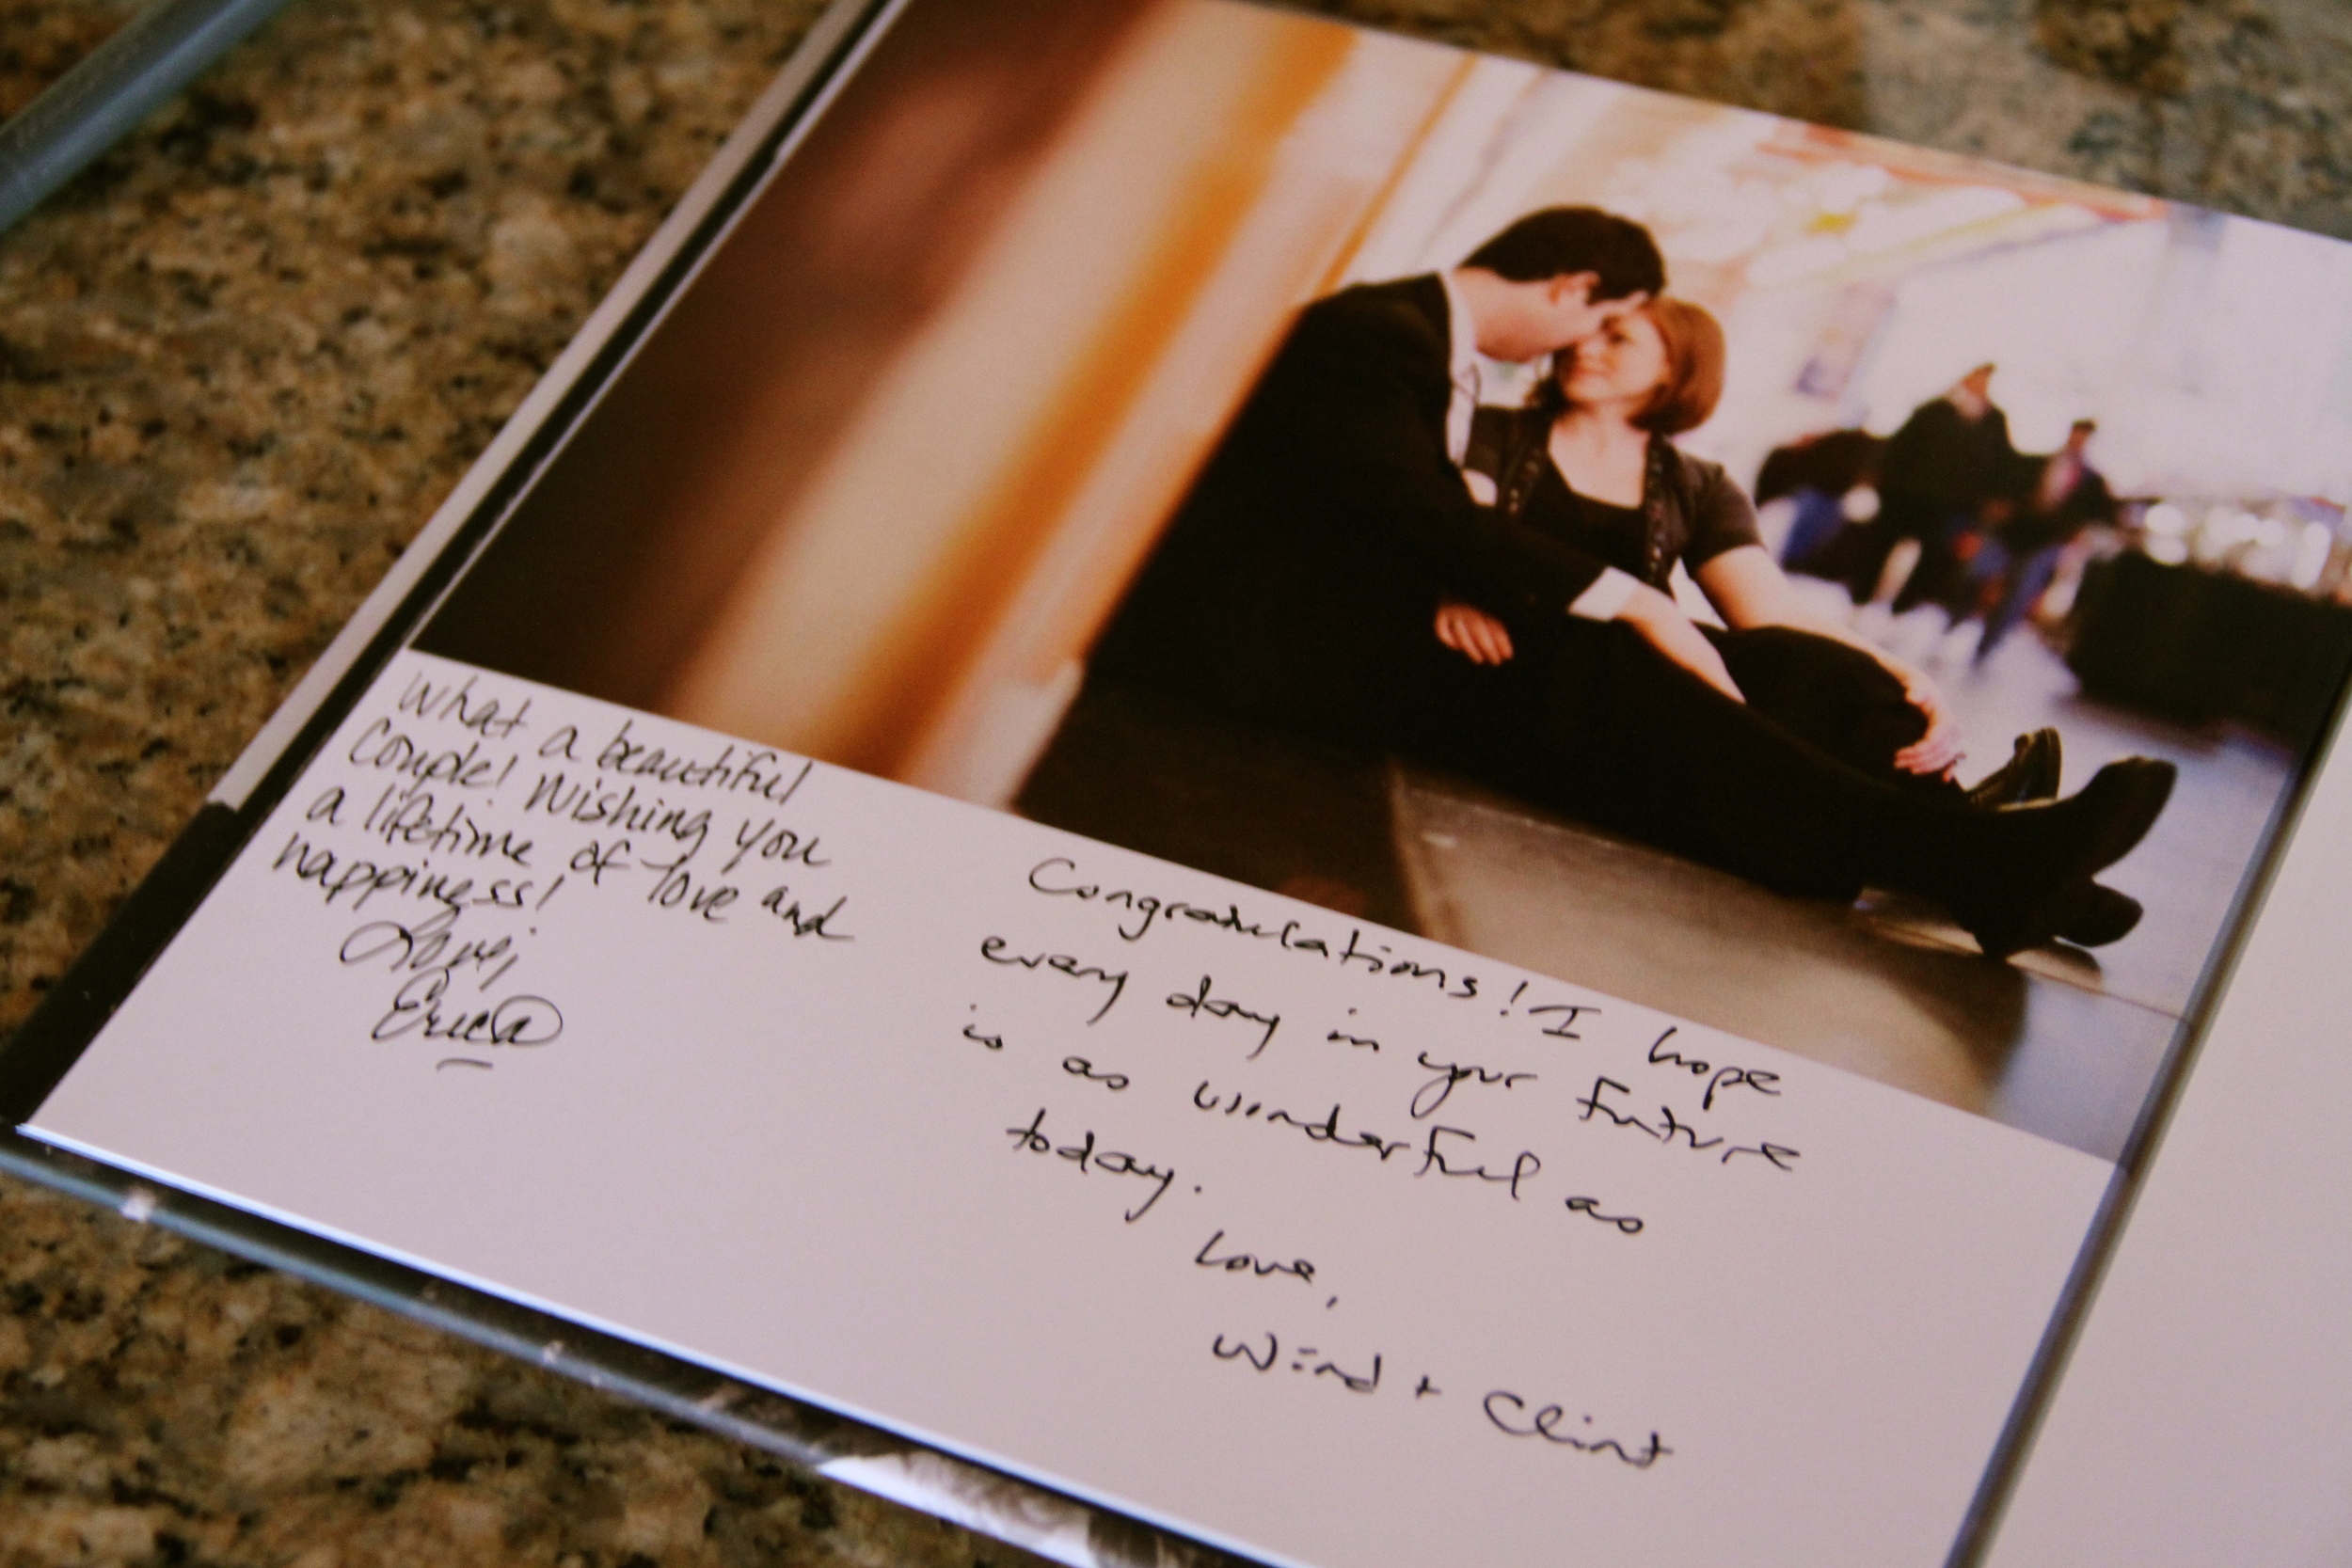 What a beautiful
Couple! Wishing you
a lifetime of love and
happiness!
Love,
Erica
Congradulations! I hope
every day in your future
is as wonderful as
today.
Love,
Wind + Clint